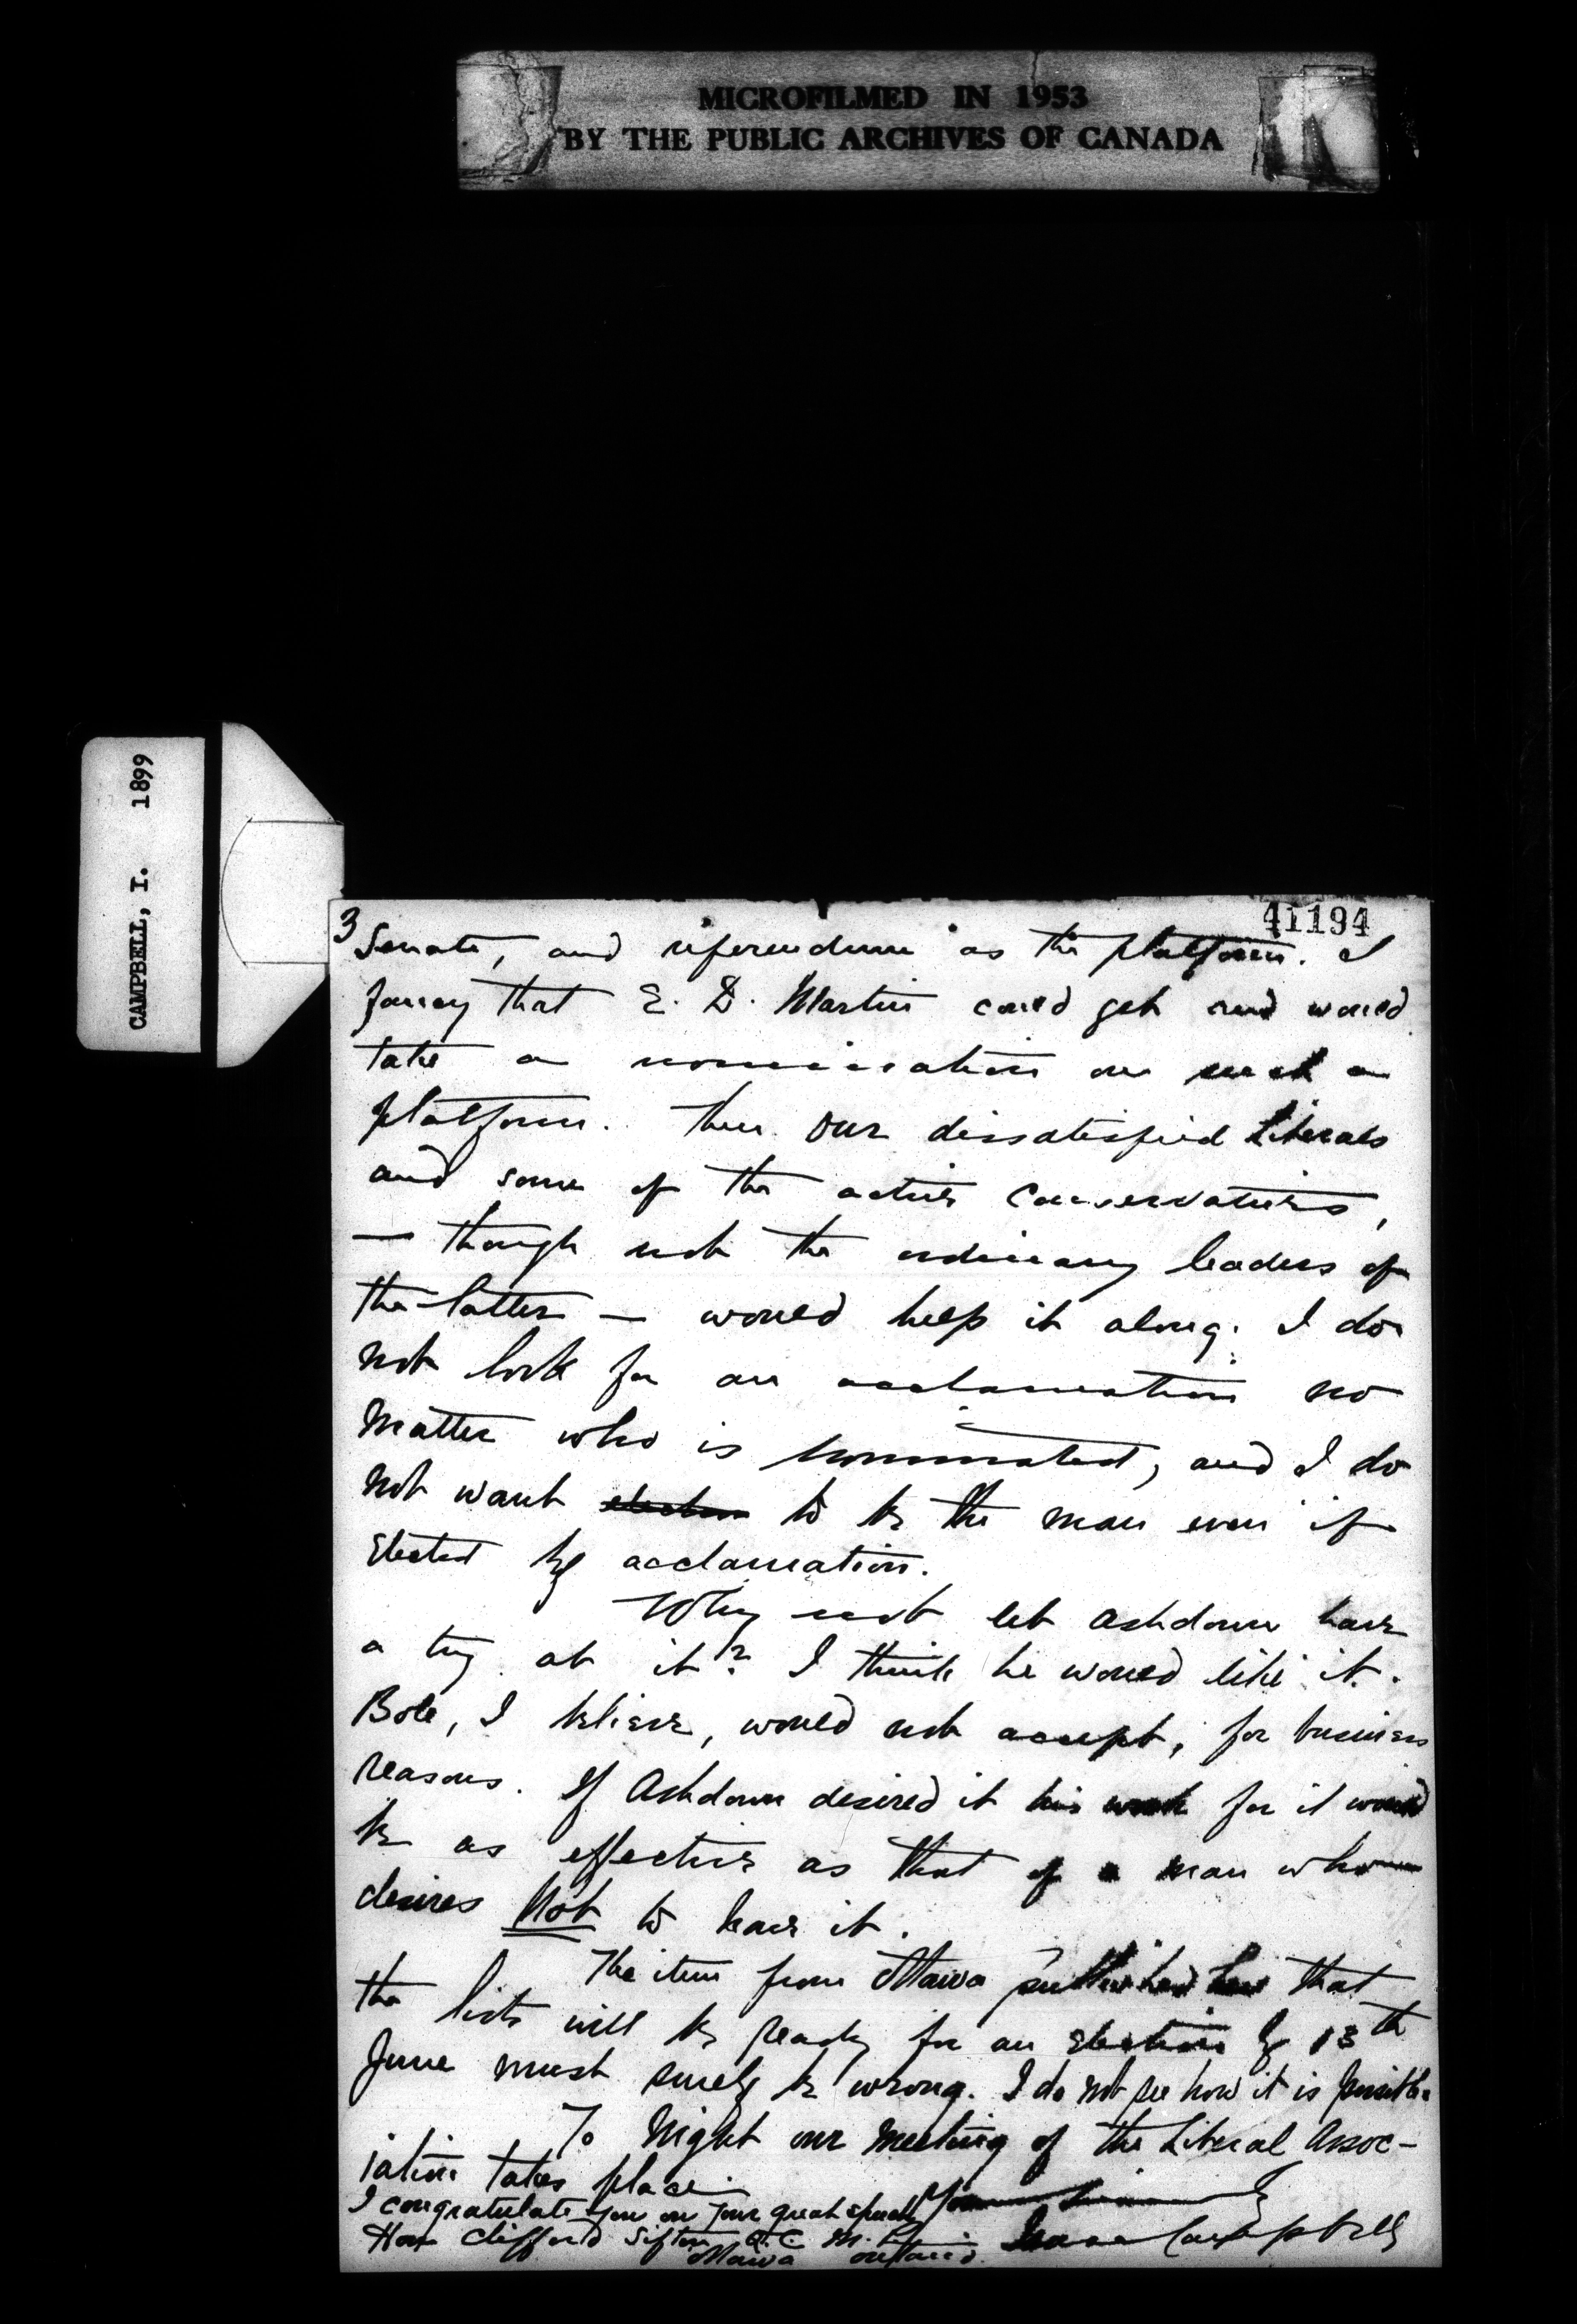 MICROFILMED IN 1953
BY THE PUBLIC ARCHIVES OF CANADA
CAMPBELL, I. 1899
41194
3
Senate, and referendum as the platform. I
fancy that E. D. Martin could get and would
take a nomination on such a
platform. Then our dissatisfied Liberals
and some of the active Conservatives,
— though not the ordinary leaders of
the latter — would help it along. I do
not look for an acclamation no
matter who is nominated, and I do
not want election to be the man even if
elected by acclamation.
Why not let Ashdown have
a try at it? I think he would like it.
Bole, I believe, would not accept, for business
reasons. If Ashdown desired it his work for it would
be as effective as that of a man who
desires Not to have it.
The item from Ottawa published here that
the lists will be ready for an election by 13th
June must surely be wrong. I do not see how it is possible
To night our meeting of the Liberal Assoc-
iation takes place.
I congratulate you on your great speech Yours
Hon Clifford Sifton Q.C. M.P. Isaac Campbell
Ottawa Ontario.